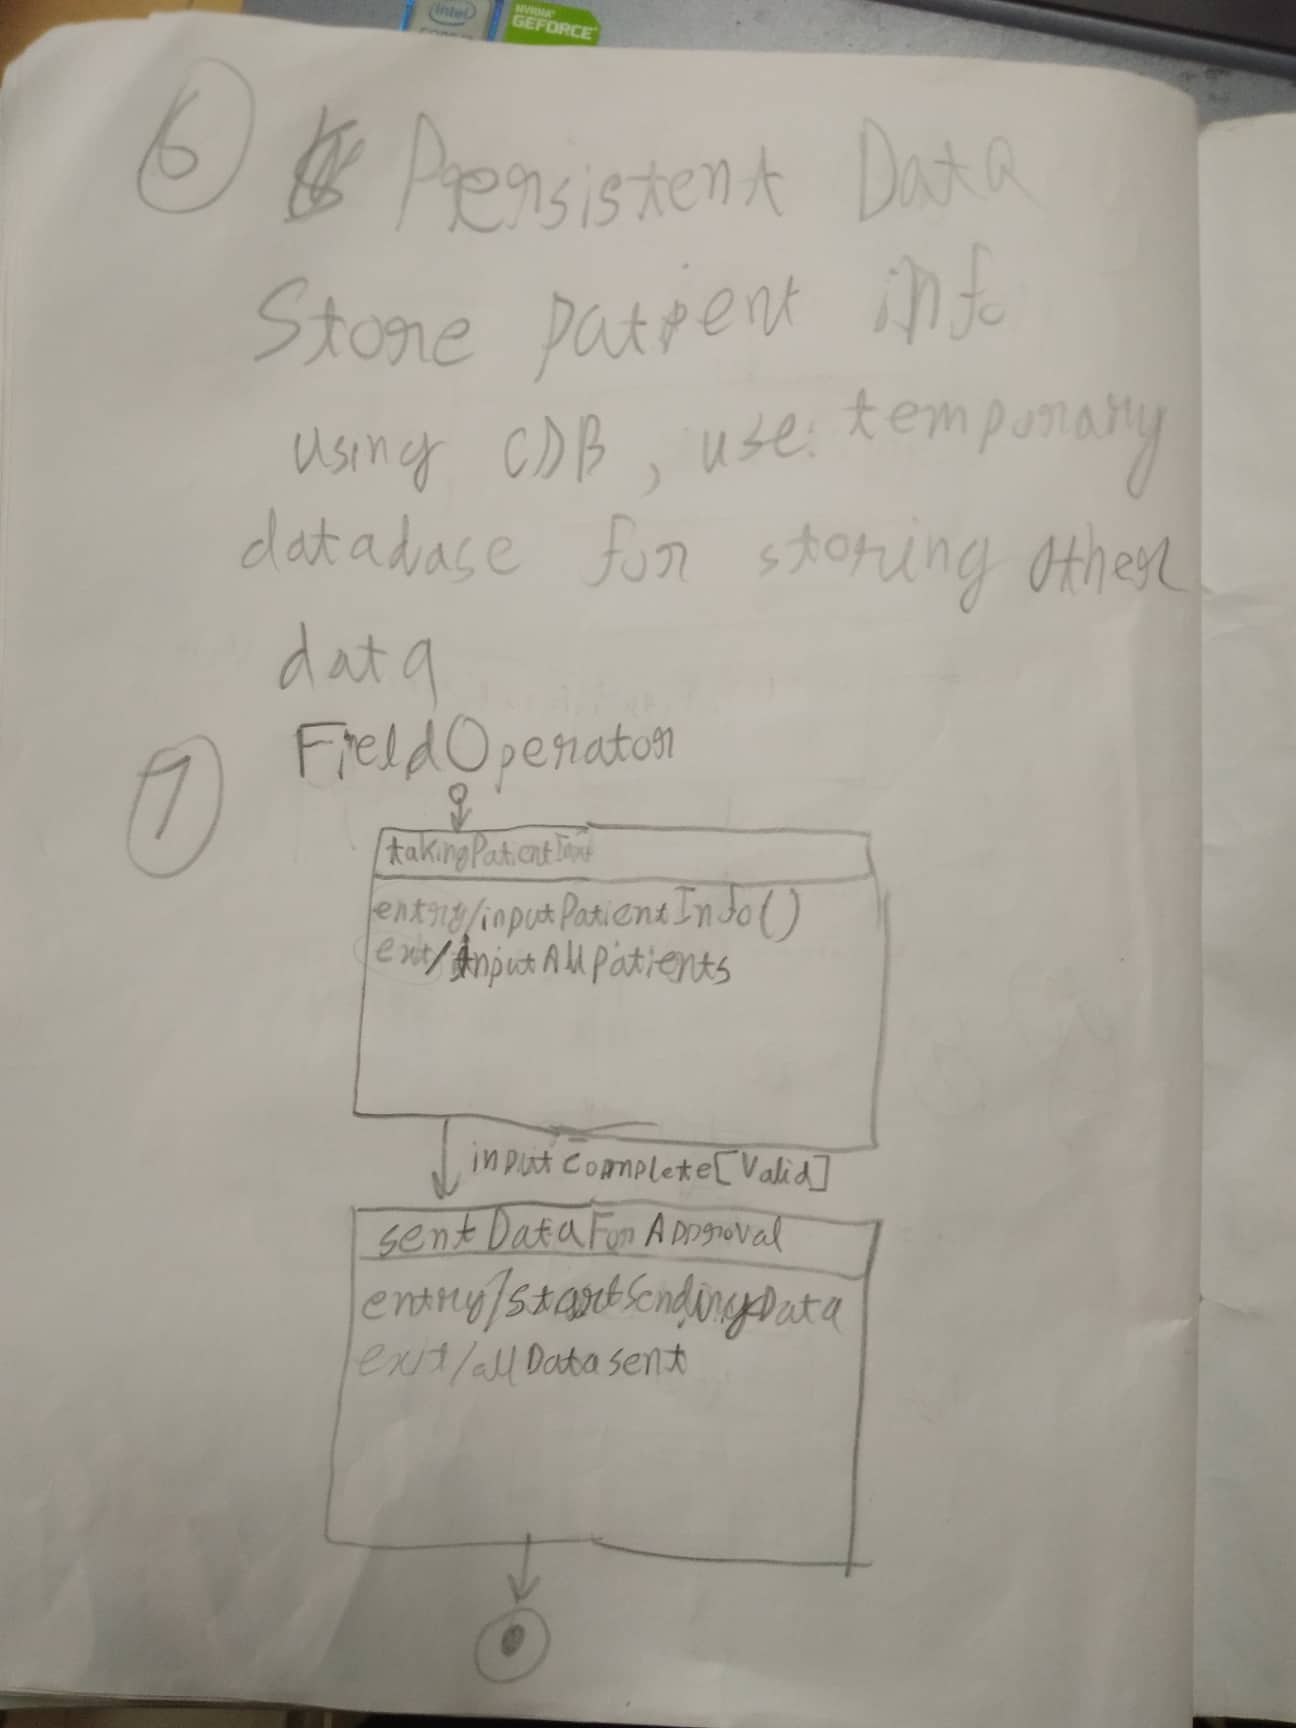 intel
NVIDIA
GEFORCE
6 Persistent Data
Store patient info
using CDB, use temporary
datadase for storing other
data
7 FieldOperator
takingPatient
entry/inputPatientInfo()
exit/inputAllPatients
inputComplete[Valid]
sentDataForApproval
entry/startSendingData
exit/allDatasent